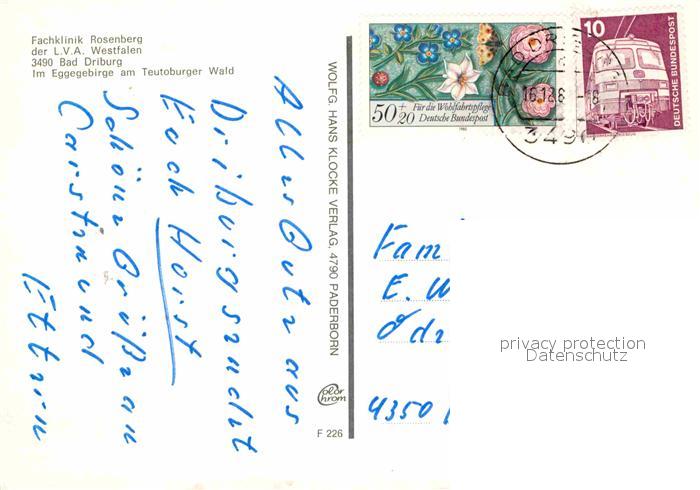 Fachklinik Rosenberg
der L.V.A. Westfalen
3490 Bad Driburg
Im Eggegebirge am Teutoburger Wald
Alles Gute aus
Driburg sendet
Euch Horst
Schöne Grüße an
Carst und
Eltern
WOLFG. HANS KLOCKE VERLAG, 4790 PADERBORN
Color
Chrom
F 226
50+20
Für die Wohlfahrtspflege
Deutsche Bundespost
1985
10
DEUTSCHE BUNDESPOST
3490
Fam
E. W
4350
privacy protection
Datenschutz